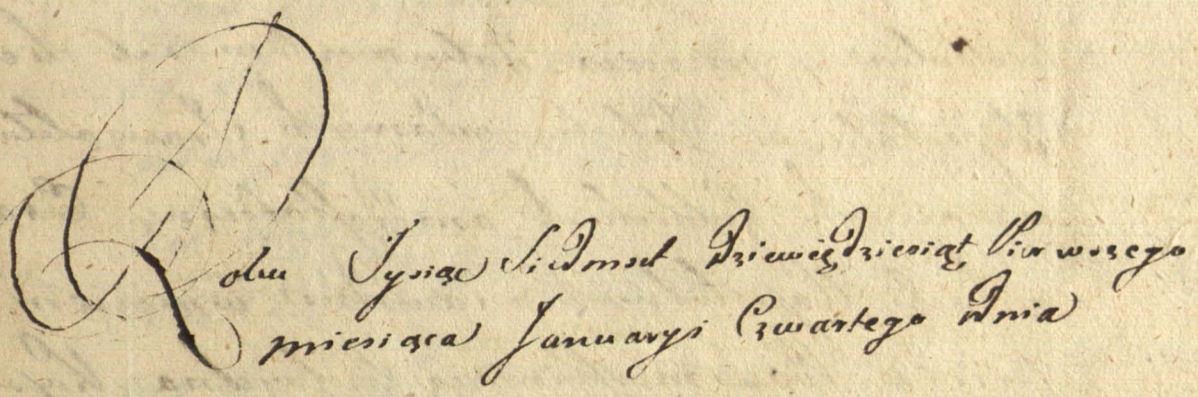 Roku Tysiąc Siedmset Dziewięędziesiąt Pierwszego
miesiąca Januaryi Czwartego Dnia